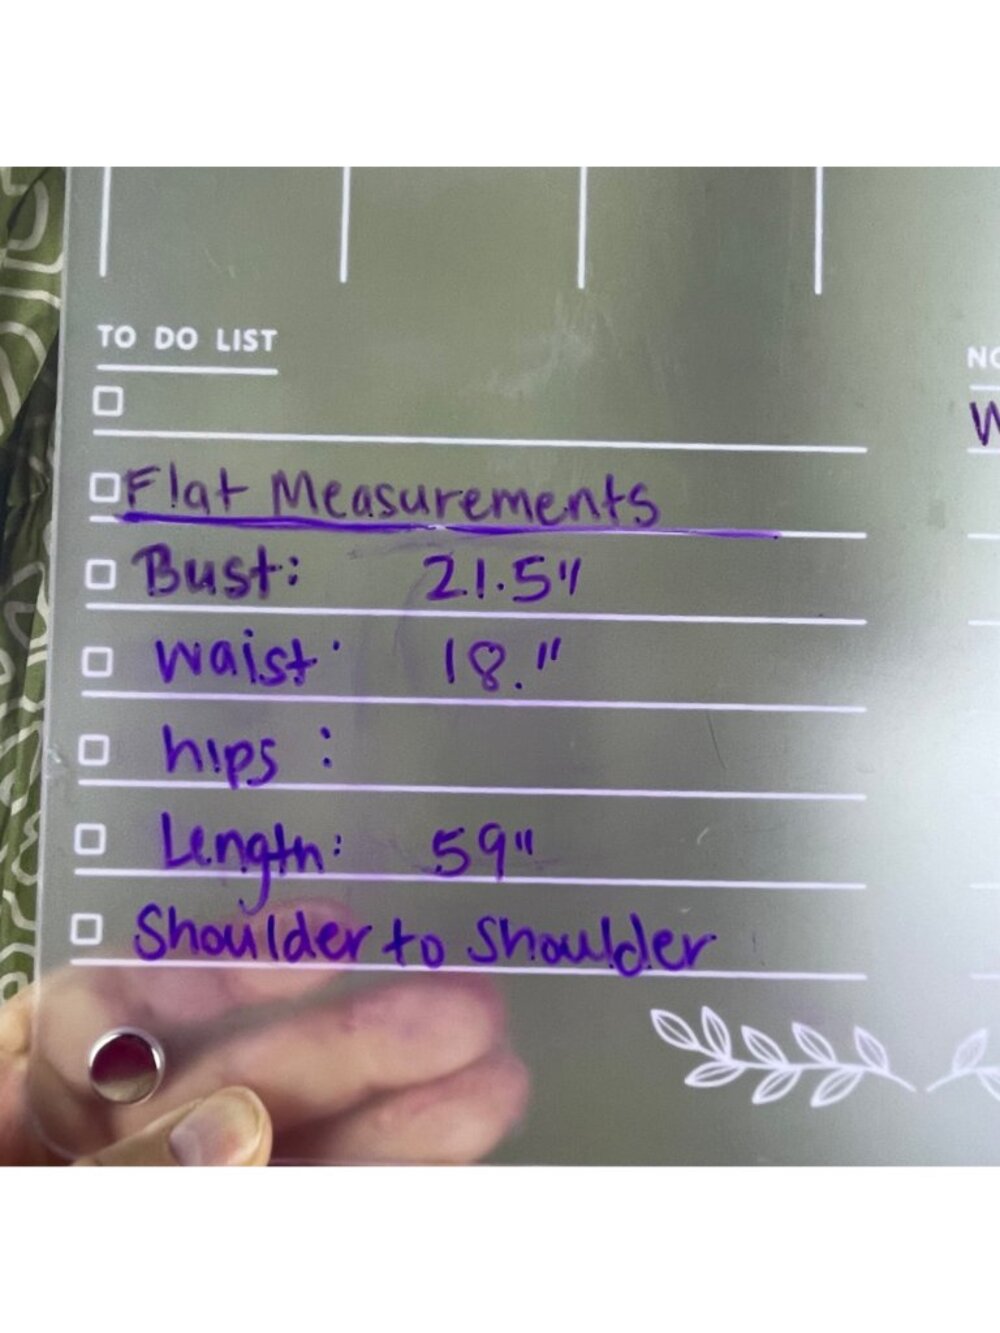 TO DO LIST
Flat Measurements
Bust: 21.5"
waist: 18."
hips :
Length: 59"
Shoulder to Shoulder